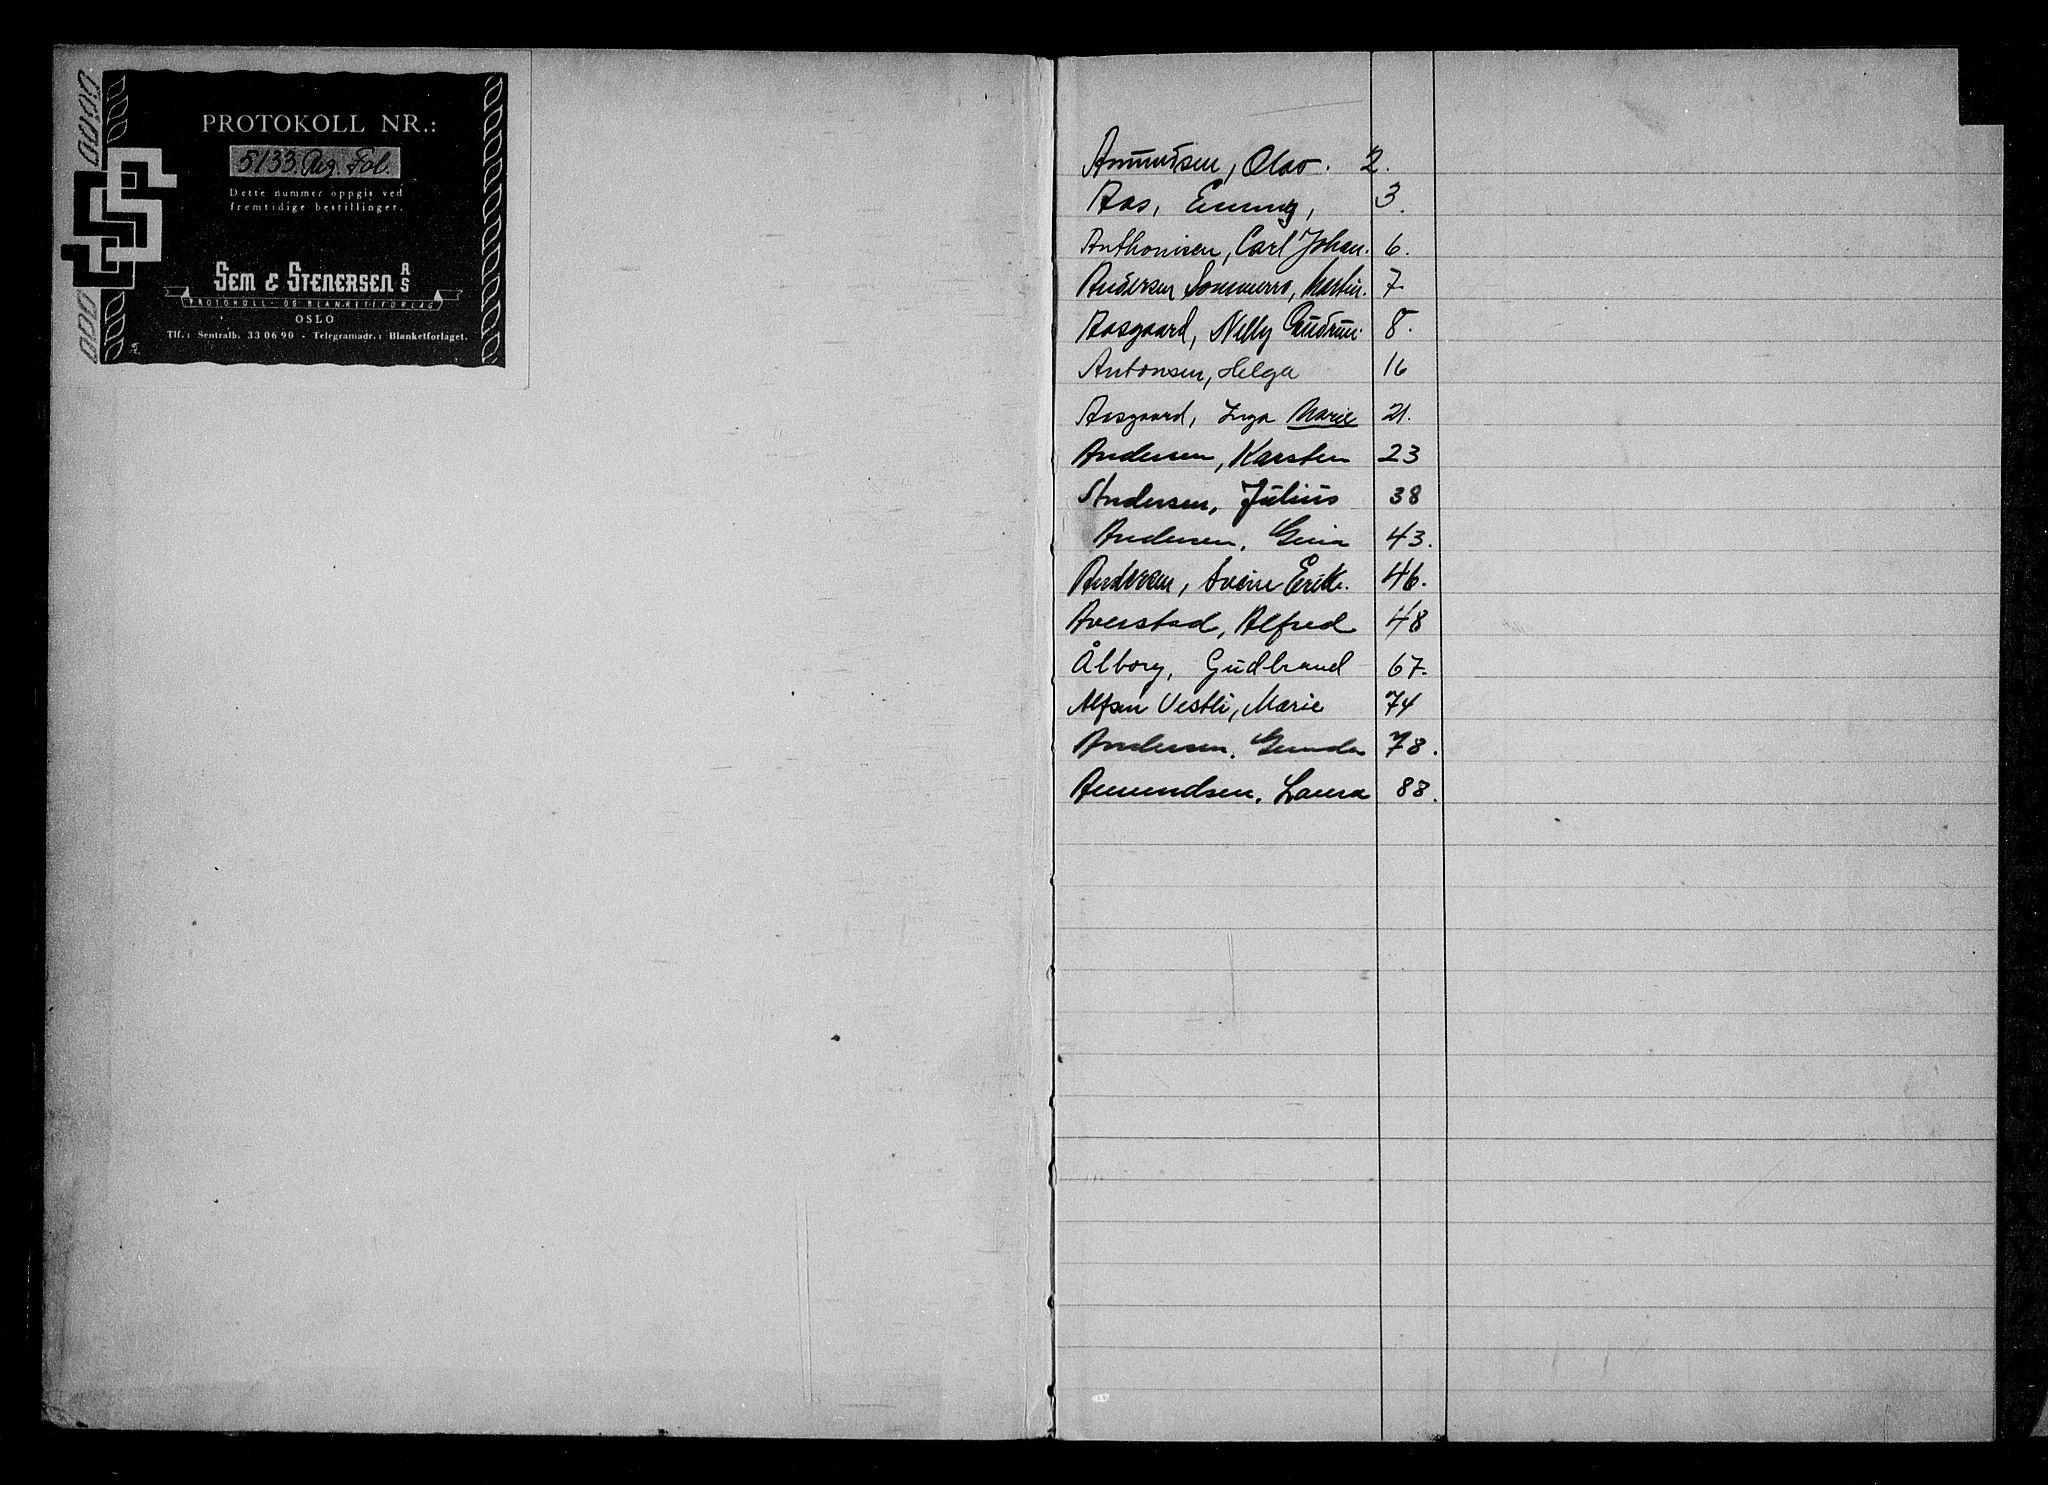 PROTOKOLL NR.:
5133. Reg. Fol.
Dette nummer oppgis ved
fremtidige bestillinger.
SEM & STENERSEN A/S
PROTOKOLL- OG BLANKETTFORLAG
OSLO
Tlf.: Sentralb. 33 06 90 - Telegramadr.: Blanketforlaget.
Amundsen, Olav. 2.
Aas, Emmy, 3.
Anthonisen, Carl Johan. 6.
Andersen Sommerro, Martin. 7.
Aasgaard, Nelly Gudrun. 8.
Antonsen, Helga 16
Aasgaard, Inga Marie 21.
Andersen, Karsten 23
Andersen, Julius 38
Andersen, Gina 43.
Andersen, Svein Erik. 46.
Averstad, Alfred 48
Ålborg, Gudbrand 67.
Alfsen Vestli, Marie 74
Andersen, Gunda 78.
Amundsen, Laura 88.